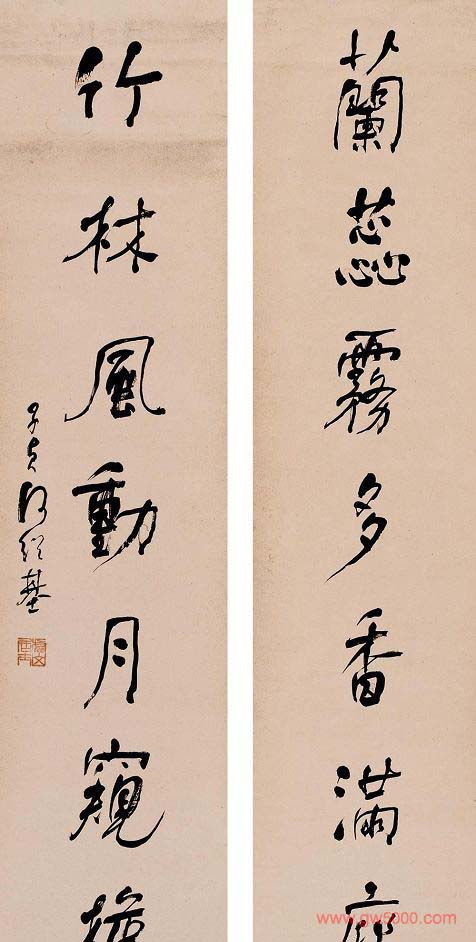 蘭蕊霧多香滿廊
竹林風動月窺
子貞何紹基
www.gw5000.com